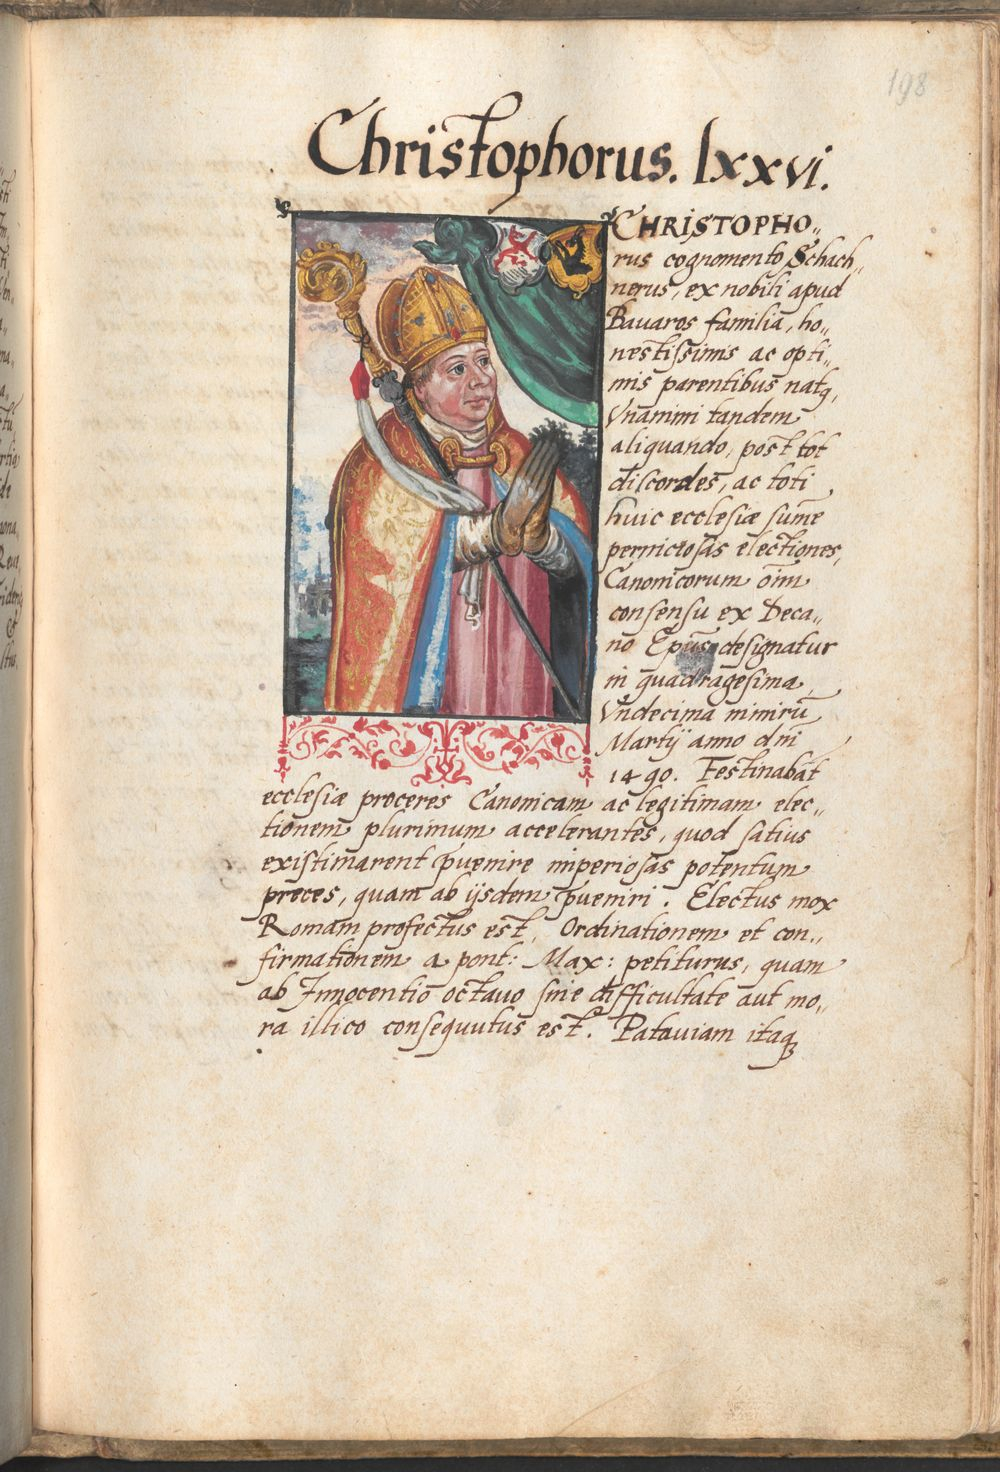 198
Christophorus. lxxvi.
CHRISTOPHO„
rus cognomento Schach„
nerus, ex nobili apud
Bavaros familia, ho„
nestissimis ac opti„
mis parentibus natq,
Vnanimi tandem
aliquando, post tot
discordes, ac toti
huic ecclesiæ sum̄e
perniciosas electiones,
Canonicorum oīm
consensu ex Deca„
no Ep̄us designatur
in quadragesima,
Vndecima nimirū
Martij anno dn̄i
1490. Festinabāt
ecclesiæ proceres Canonicam ac legitimam elec„
tionem plurimum accelerantes, quod satius
existimarent p̄uenire imperiosas potentum
preces, quam ab ijsdem p̄ueniri. Electus mox
Romam profectus est, Ordinationem et con„
firmationem a pont: Max: petiturus, quam
ab Innocentio octauo sine difficultate aut mo„
ra illico consequutus est. Patauiam itaqꝫ